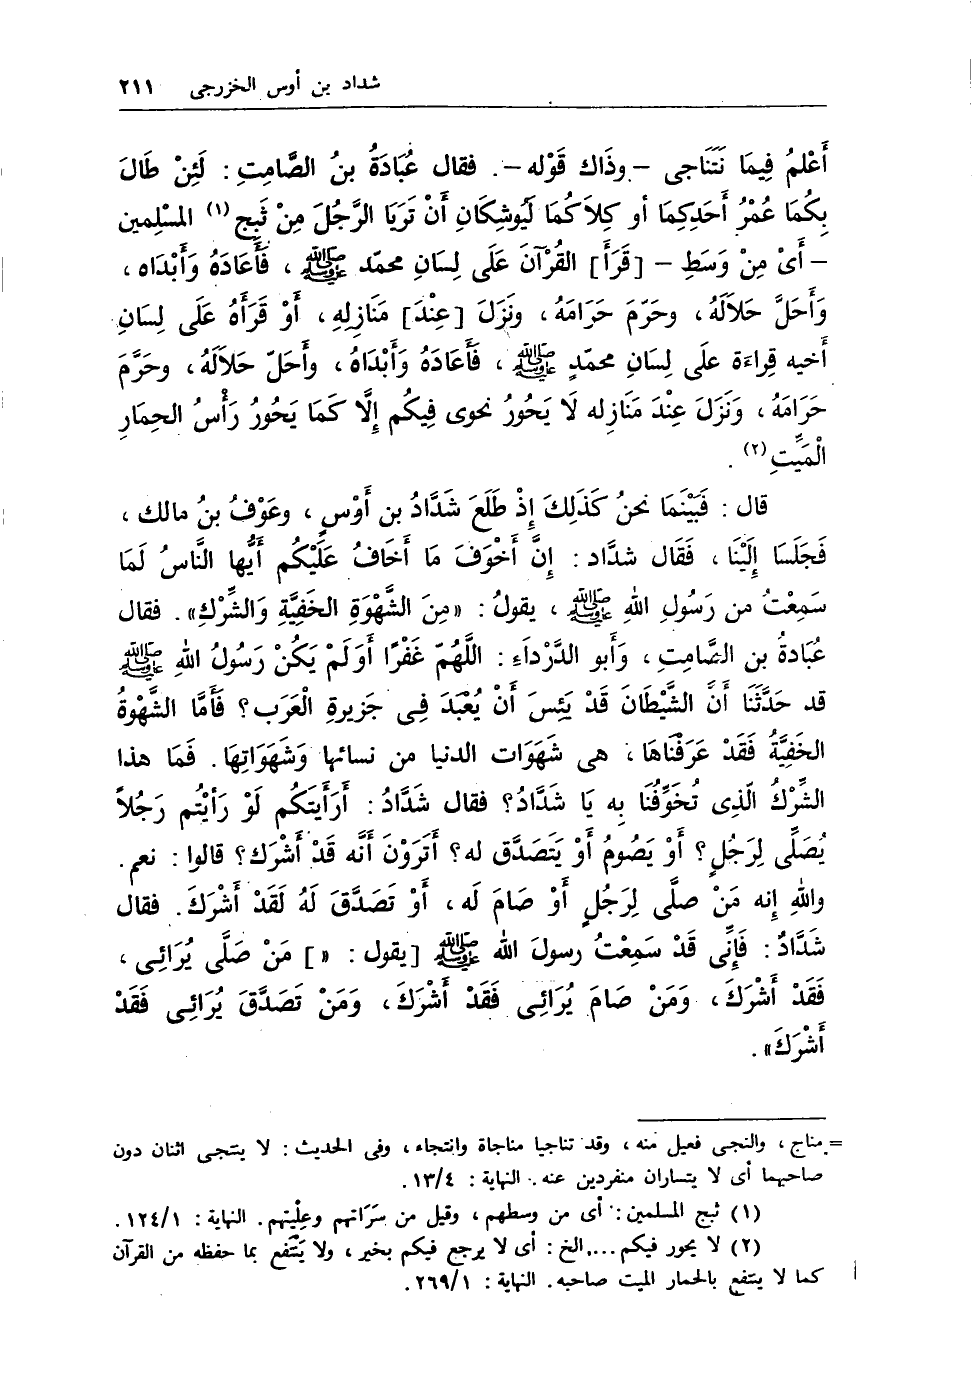 شداد بن أوس الخزرجى ٢١١
أَعْلمُ فِيمَا نَتَنَاجى – وذَاك قَوْله –. فقال عُبَادَةُ بنُ الصَّامِتِ : لَئِنْ طَالَ
بِكُمَا عُمْرُ أَحَدِكِمَا أو كِلاَكُمَا لَيُوشِكَانِ أَنْ تَرَيَا الرَّجُلَ مِنْ ثَبِجِ (١) المسْلِمين
– أَىْ مِنْ وَسَطِ – [قَرَأ] القُرْآنَ عَلَى لِسَانِ محمّد ﷺ ، فَأَعَادَهُ وَأَبْدَاه ،
وَأَحَلَّ حَلاَلَهُ ، وحَرّمَ حَرَامَهُ ، ونَزَلَ [عِنْدَ] مَنَازِلِهِ ، أَوْ قَرَأَهُ عَلَى لِسَانِ
أخيه قِراءَة علَى لِسَانِ محمّدٍ ﷺ ، فَأَعَادَهُ وَأَبْدَاهُ ، وأَحَلّ حَلاَلَهُ ، وحَرَّمَ
حَرَامَهُ ، وَنَزَلَ عِنْدَ مَنَازِله لَا يَحُورُ نحوى فِيكُم إِلَّا كَمَا يَحُورُ رَأْسُ الحِمَارِ
الْمَيِّتِ (٢) .
قال : فَبَيْنَمَا نحنُ كَذَلِكَ إِذْ طَلَعَ شَدَّادُ بن أَوْسٍ ، وعَوْفُ بنُ مالك ،
فَجَلَسَا إِلَيْنَا ، فَقَال شدَّاد : إِنَّ أَخْوَفَ مَا أَخَافُ عَلَيْكُم أَيُّها النَّاسُ لَمَا
سَمِعْتُ من رَسُولِ اللهِ ﷺ ، يقولُ : «مِنَ الشَّهْوَةِ الخَفِيَّةِ وَالشِّرْكِ». فقال
عُبَادةُ بن الصَّامتِ ، وَأَبو الدَّرْداَءِ : اللَّهُمّ غَفْرًا أَوَلَمْ يَكُنْ رَسُولُ اللهِ ﷺ
قد حَدَّثَنَا أَنَّ الشَّيْطَانَ قَدْ يَئِسَ أَنْ يُعْبَدَ فِى جَزيرةِ الْعَرَب؟ فَأَمَّا الشَّهْوةُ
الخَفِيَّةُ فَقَدْ عَرَفْنَاهَا ، هى شَهَوَات الدنيا من نسائها وَشَهَوَاتِهَا. فَمَا هذا
الشِّرْكُ الّذِى تُخَوِّفُنَا به يَا شَدَّادُ؟ فقال شَدَّادُ : أَرَأَيتَكُم لَوْ رَأيْتُم رَجُلاً
يُصَلِّى لِرَجُلٍ؟ أَوْ يَصُومُ أَوْ يَتَصَدَّق له؟ أَتَرَوْنَ أَنَّه قَدْ أَشْرَك؟ قالوا : نعم.
واللهِ إنه مَنْ صلَّى لِرَجُلٍ أَوْ صَامَ لَه ، أَوْ تَصَدَّقَ لَهُ لَقَدْ أَشْرَكَ. فقال
شَدَّادٌ : فَإِنِّى قَدْ سَمِعْتُ رسولَ الله ﷺ [يقول : «] مَنْ صَلَّى يُرَائِى ،
فَقَدْ أَشْرَكَ ، وَمَنْ صَامَ يُرَائِى فَقَدْ أَشْرَكَ ، وَمَنْ تَصَدَّقَ يُرَائِى فَقَدْ
أَشْرَكَ».
= مناج ، والنجى فعيل منه ، وقد تناجيا مناجاة وانتجاء ، وفى الحديث : لا ينتجى اثنان دون
صاحبهما أى لا يتساران منفردين عنه. النهاية : ١٣/٤.
(١) ثبج المسلمين : أى من وسطهم ، وقيل من سَرَاتهم وعِلْيتهم. النهاية : ١٢٤/١.
(٢) لا يحور فيكم ....الخ : أى لا يرجع فيكم بخير ، ولا يَنْتَفع بما حفظه من القرآن
كما لا ينتفع بالحمار الميت صاحبه. النهاية : ٢٦٩/١.